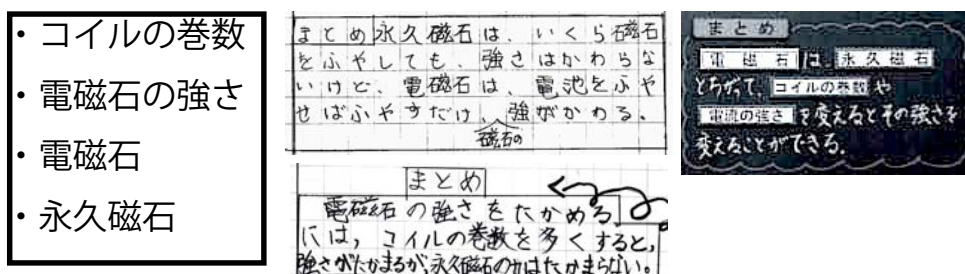 ・コイルの巻数
・電磁石の強さ
・電磁石
・永久磁石
まとめ 永久磁石は、いくら磁石
をふやしても、強さはかわらな
いけど、電磁石は、電池をふや
せばふやすだけ、強がかわる。
磁石の
まとめ
電磁石の強さをたかめる
には，コイルの巻数を多くすると，
強さがたかまるが、永久磁石の力はたかまらない。
まとめ
電磁石は、永久磁石
とちがって、コイルの巻数や
電流の強さを変えるとその強さを
変えることができる。